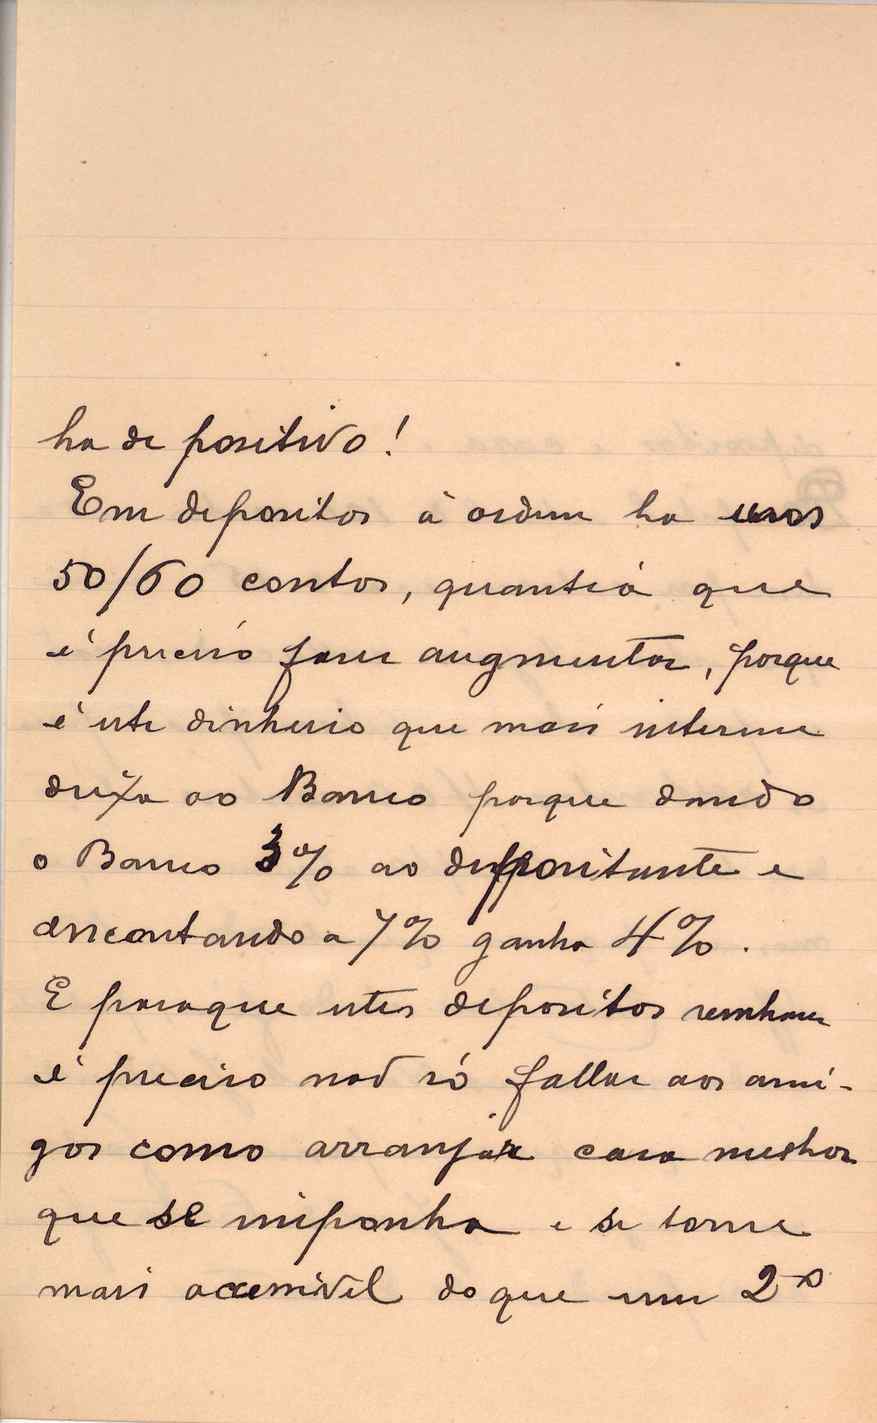 ha de positivo!
Em depositos á ordem ha uns
50/60 contos, quantia que
é preciso fazer augmentar, porque
é este dinheiro que mais interesse
deixa ao Banco porque dando
o Banco 3% ao depositante e
descontando a 7% ganha 4%.
E paraque estes depositos venham
é preciso não só fallar aos ami-
gos como arranjar casa melhor
que se imponha e se torne
mais accessivel do que um 2º